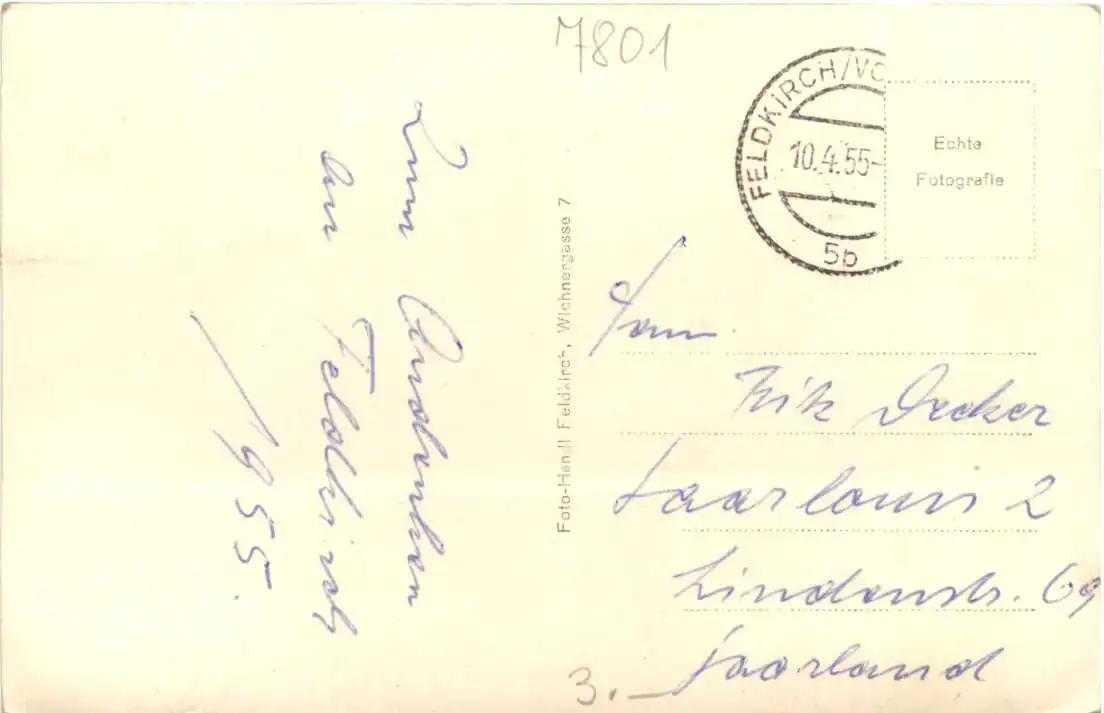 7801
Zum Andenken
an Feldkirch
1955.
Foto-Hendl Feldkirch, Wichnergasse 7
FELDKIRCH/VO
10.4.55-
5b
Echte
Fotografie
Fam.
Fritz Decker
Saarlouis 2
Lindenstr. 69
Saarland
3.-